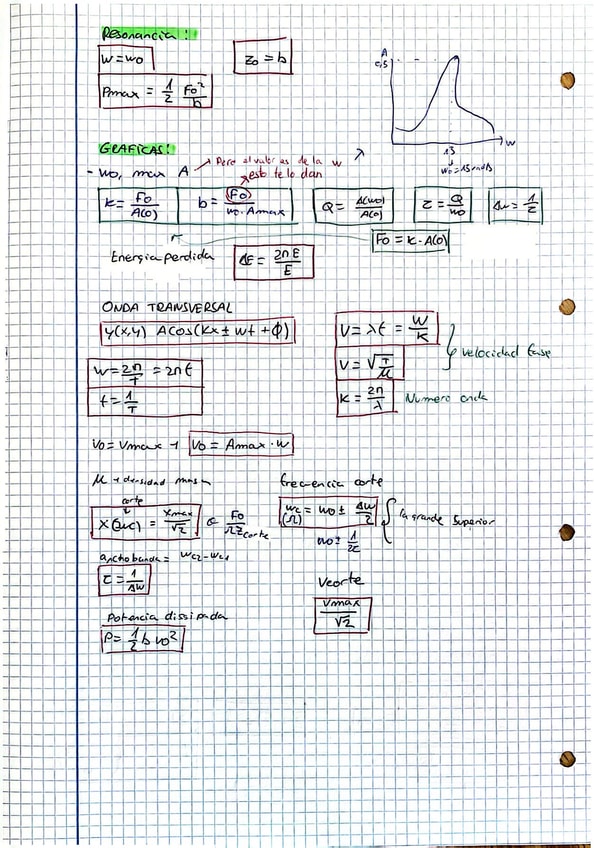 Resonancia:
w=wo
Zo = b
Pmax = 1/2 Fo²/b
A
0,5
13
w
wo=13 rad/s
GRAFICAS:
- wo, max A → Pero el valor es de la w
esto te lo dan
K = Fo/A(0)
b = Fo/wo·Amax
Q = A(wo)/A(0)
τ = Q/wo
Δw = 1/τ
Fo = K·A(0)
Energia perdida
ΔE = 2πE/E
ONDA TRANSVERSAL
y(x,y) A cos(Kx ± wt + ϕ)
V = λf = W/K
w = 2π/T = 2πf
V = √T/μ
velocidad fase
f = 1/T
K = 2π/λ Numero onda
Vo = Vmax → Vo = Amax·w
μ → densidad masa
frecuencia corte
corte
X(wc) = Xmax/√2 o Fo/ΩZcorte
wc = wo ± Δw/2
(Ω)
la grande Superior
wo ± 1/2τ
ancho banda = wc2-wc1
τ = 1/Δw
Vcorte
Vmax/√2
Potencia dissipada
P = 1/2 b vo²